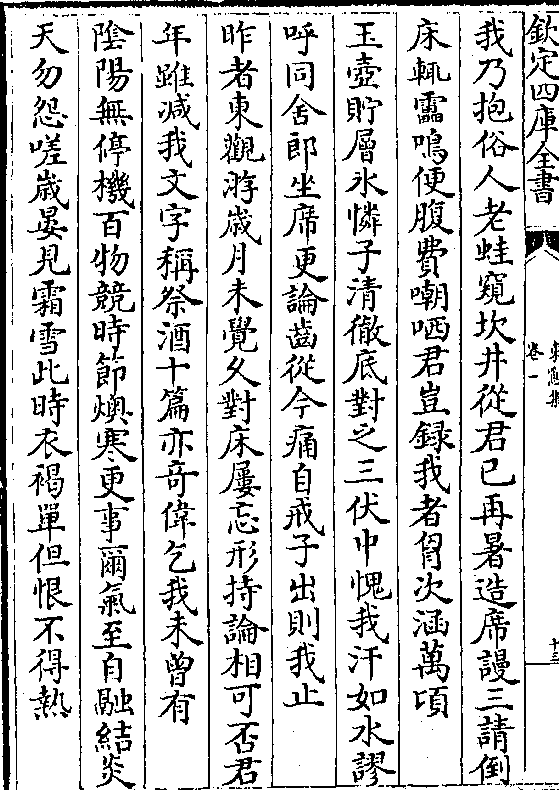 欽定四庫全書
卷一
十三
我乃抱俗人老蛙窺坎井從君已再暑造席謾三請倒
床輒靁鳴便腹費嘲哂君豈録我者胷次涵萬頃
玉壺貯層氷憐子清徹底對之三伏中愧我汗如水謬
呼同舍郎坐席更論齒從今痛自戒子出則我止
昨者東觀游歳月未覺久對床屢忘形持論相可否君
年雖减我文字稱祭酒十篇亦竒偉乞我未曾有
隂陽無停機百物競時節燠寒更事爾氣至自融結炎
天勿怨嗟歳晏見霜雪此時衣褐單但恨不得熱